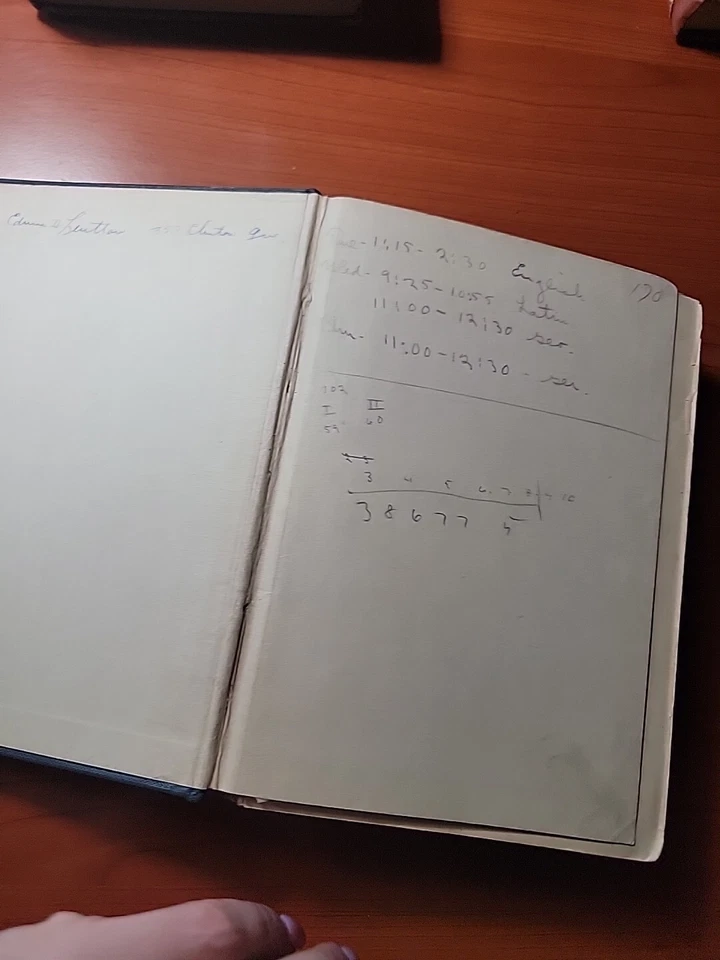 Clinton
Tue- 11:15- 2:30 English
170
Wed- 9:25-10:55 Latin
11:00- 12:30 sec.
Thu- 11:00-12:30 - sec.
102
I II
59 60
3 4 5 6 7 8 9 10
3 8 6 7 7 5